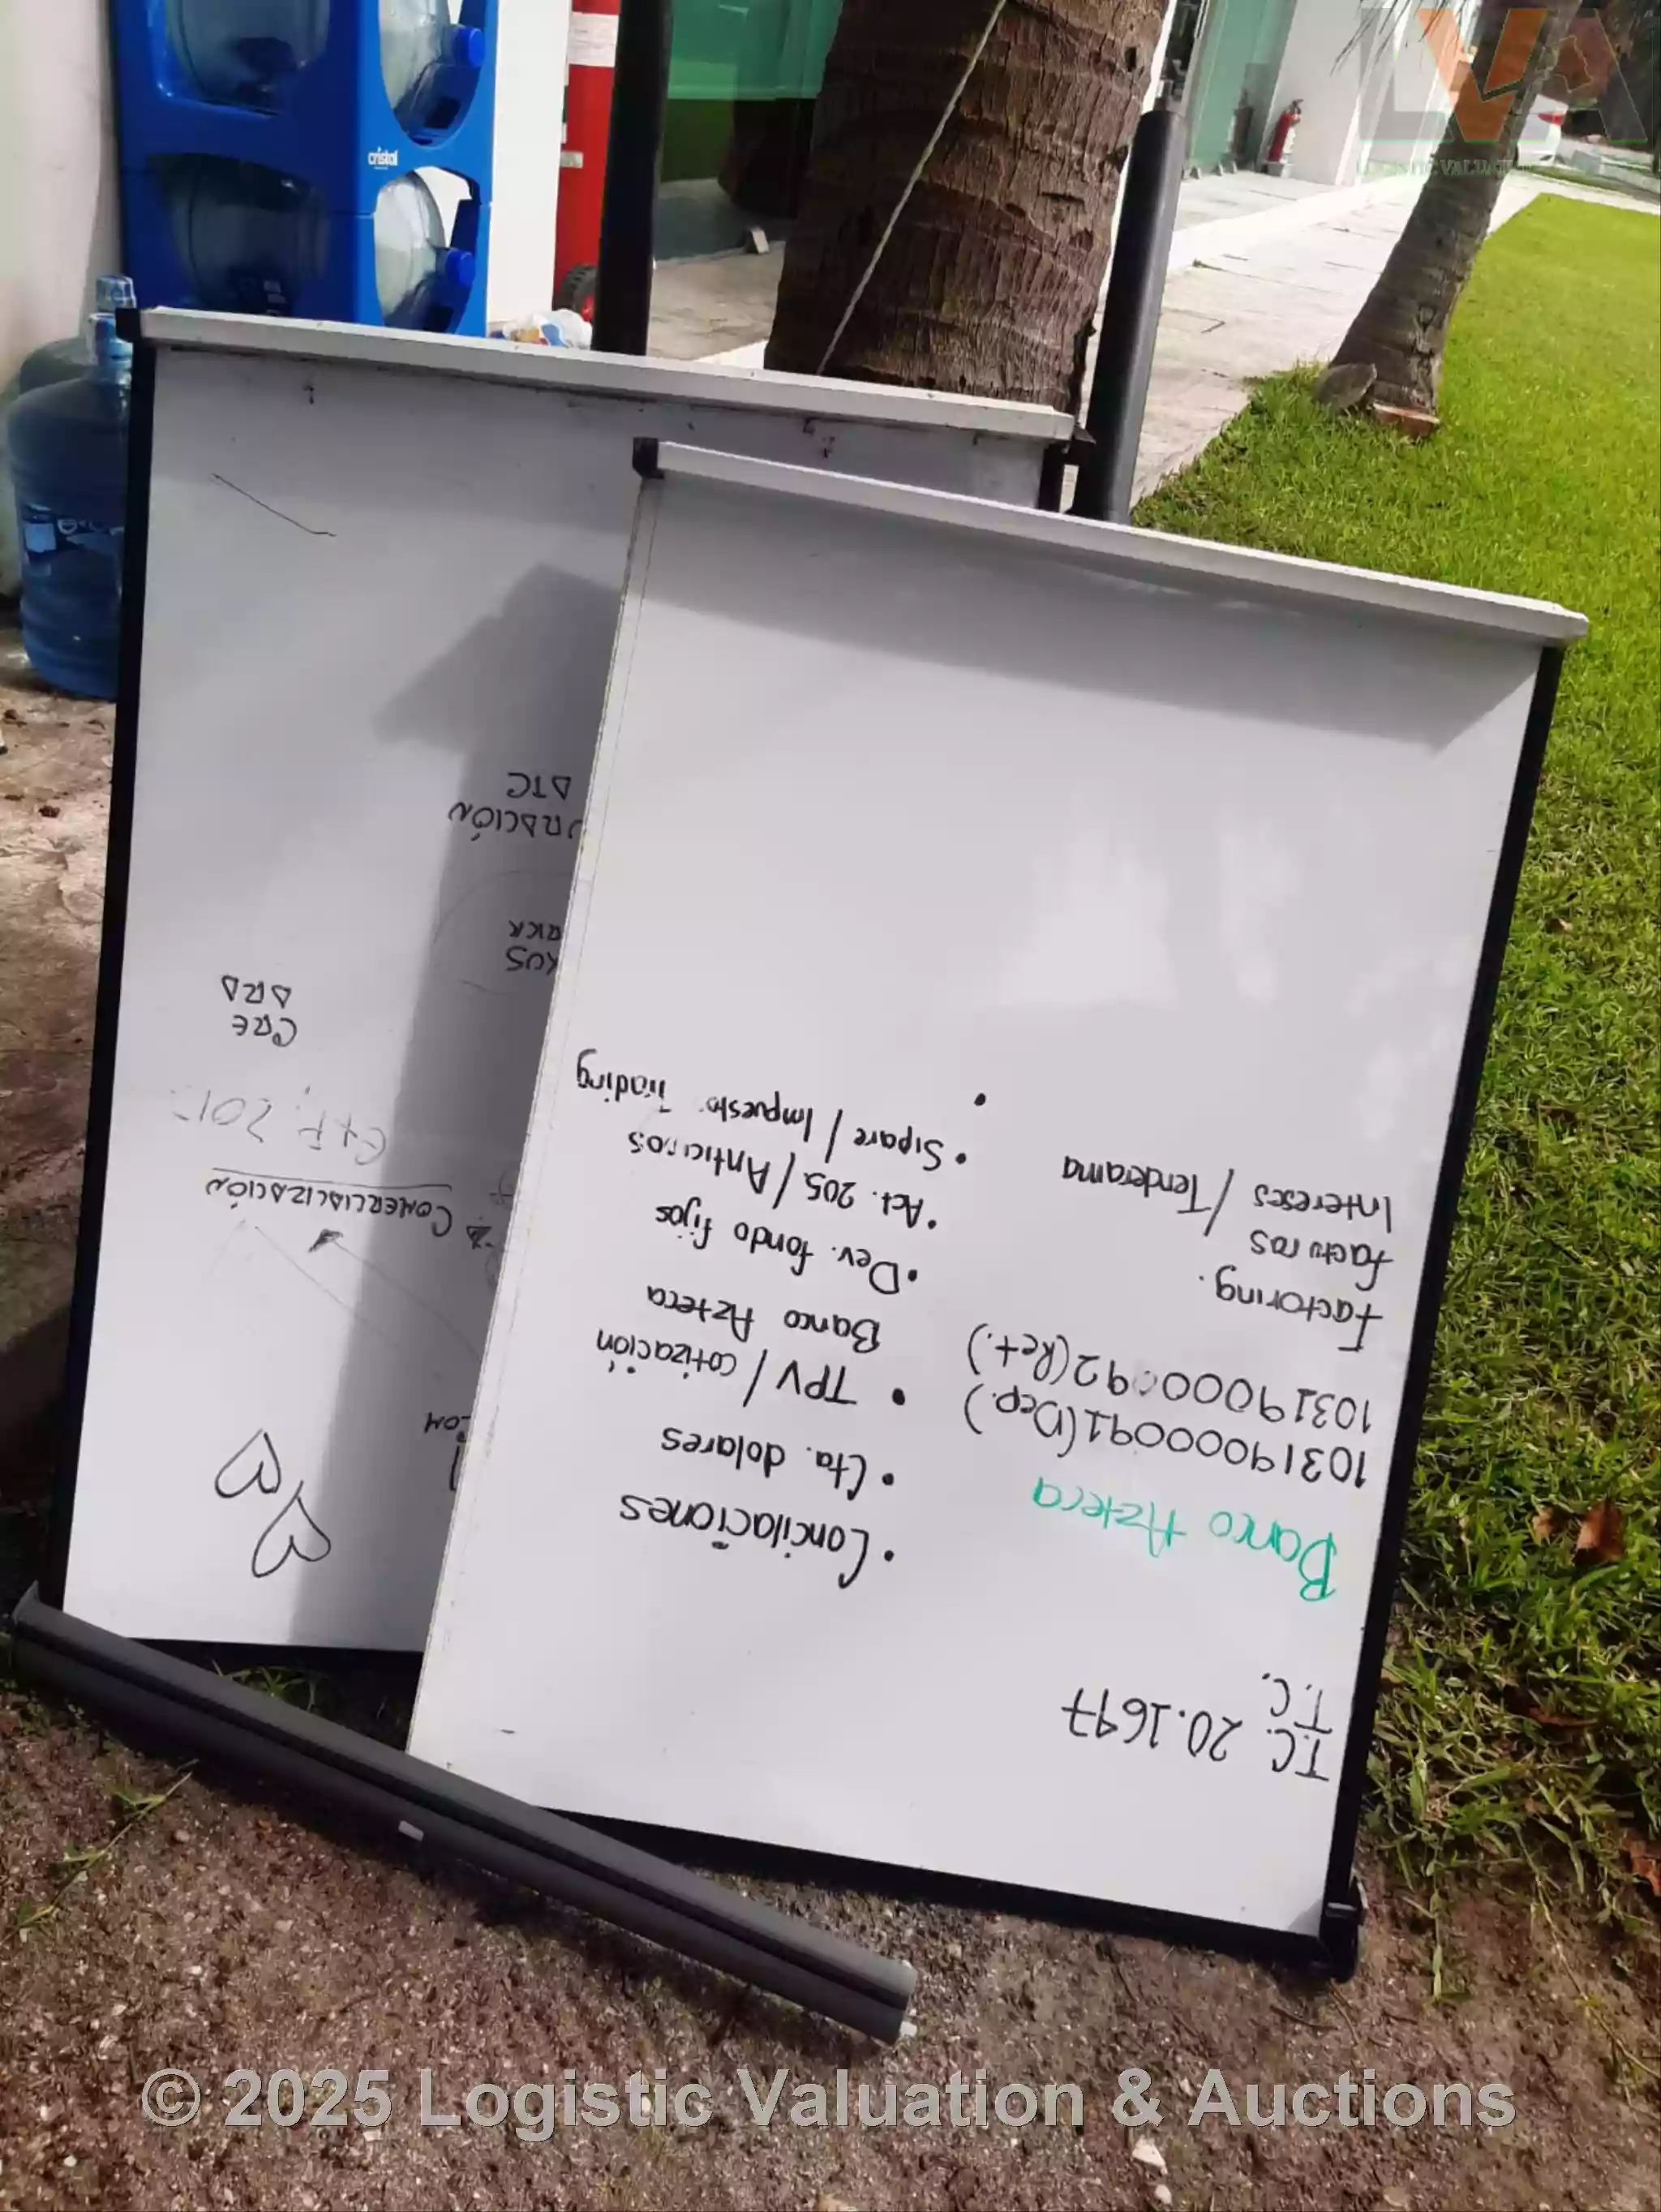 T.C. 20.1697
T.C.
Banco Azteca
1031900091 (Dep.)
1031900092 (Ret.)
Factoring.
facturas
Intereses / Tenderama
• Conciliaciones
• Cta. dolares
• TPV / cotización
Banco Azteca
• Dev. fondo fijos
• Act. 205 / Anticipos
• Sipare / Impuesto Trading
•
COMERCIALIZACIÓN
CRE
DRD
DTC
cristal
LVA
LOGISTIC VALUATION
© 2025 Logistic Valuation & Auctions